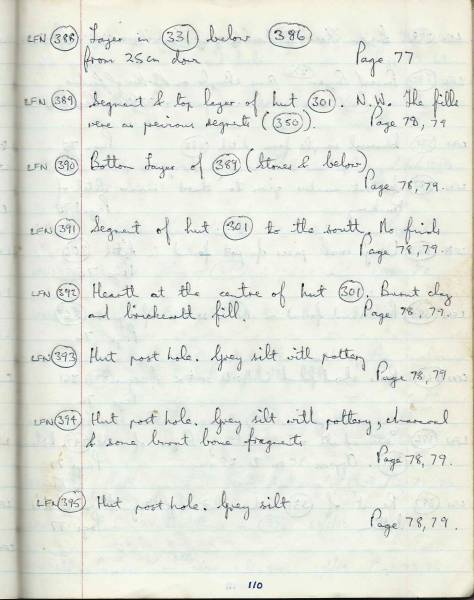 LFN 388 Layer in 331 below 386
from 25cm down Page 77
LFN 389 Segment & top layer of hut 301. N.W. The fills
were as previous segments (350). Page 78, 79
LFN 390 Bottom Layer of 389 (Stones & below)
Page 78, 79.
LFN 391 Segment of hut 301 to the south. No finds
Page 78, 79.
LFN 392 Hearth at the centre of hut 301. Burnt clay
and brickearth fill. Page 78, 79.
LFN 393 Hut post hole. Grey silt with pottery
Page 78, 79
LFN 394 Hut post hole. Grey silt with pottery, charcoal
& some burnt bone fragments
Page 78, 79.
LFN 395 Hut post hole. Grey silt
Page 78, 79.
110